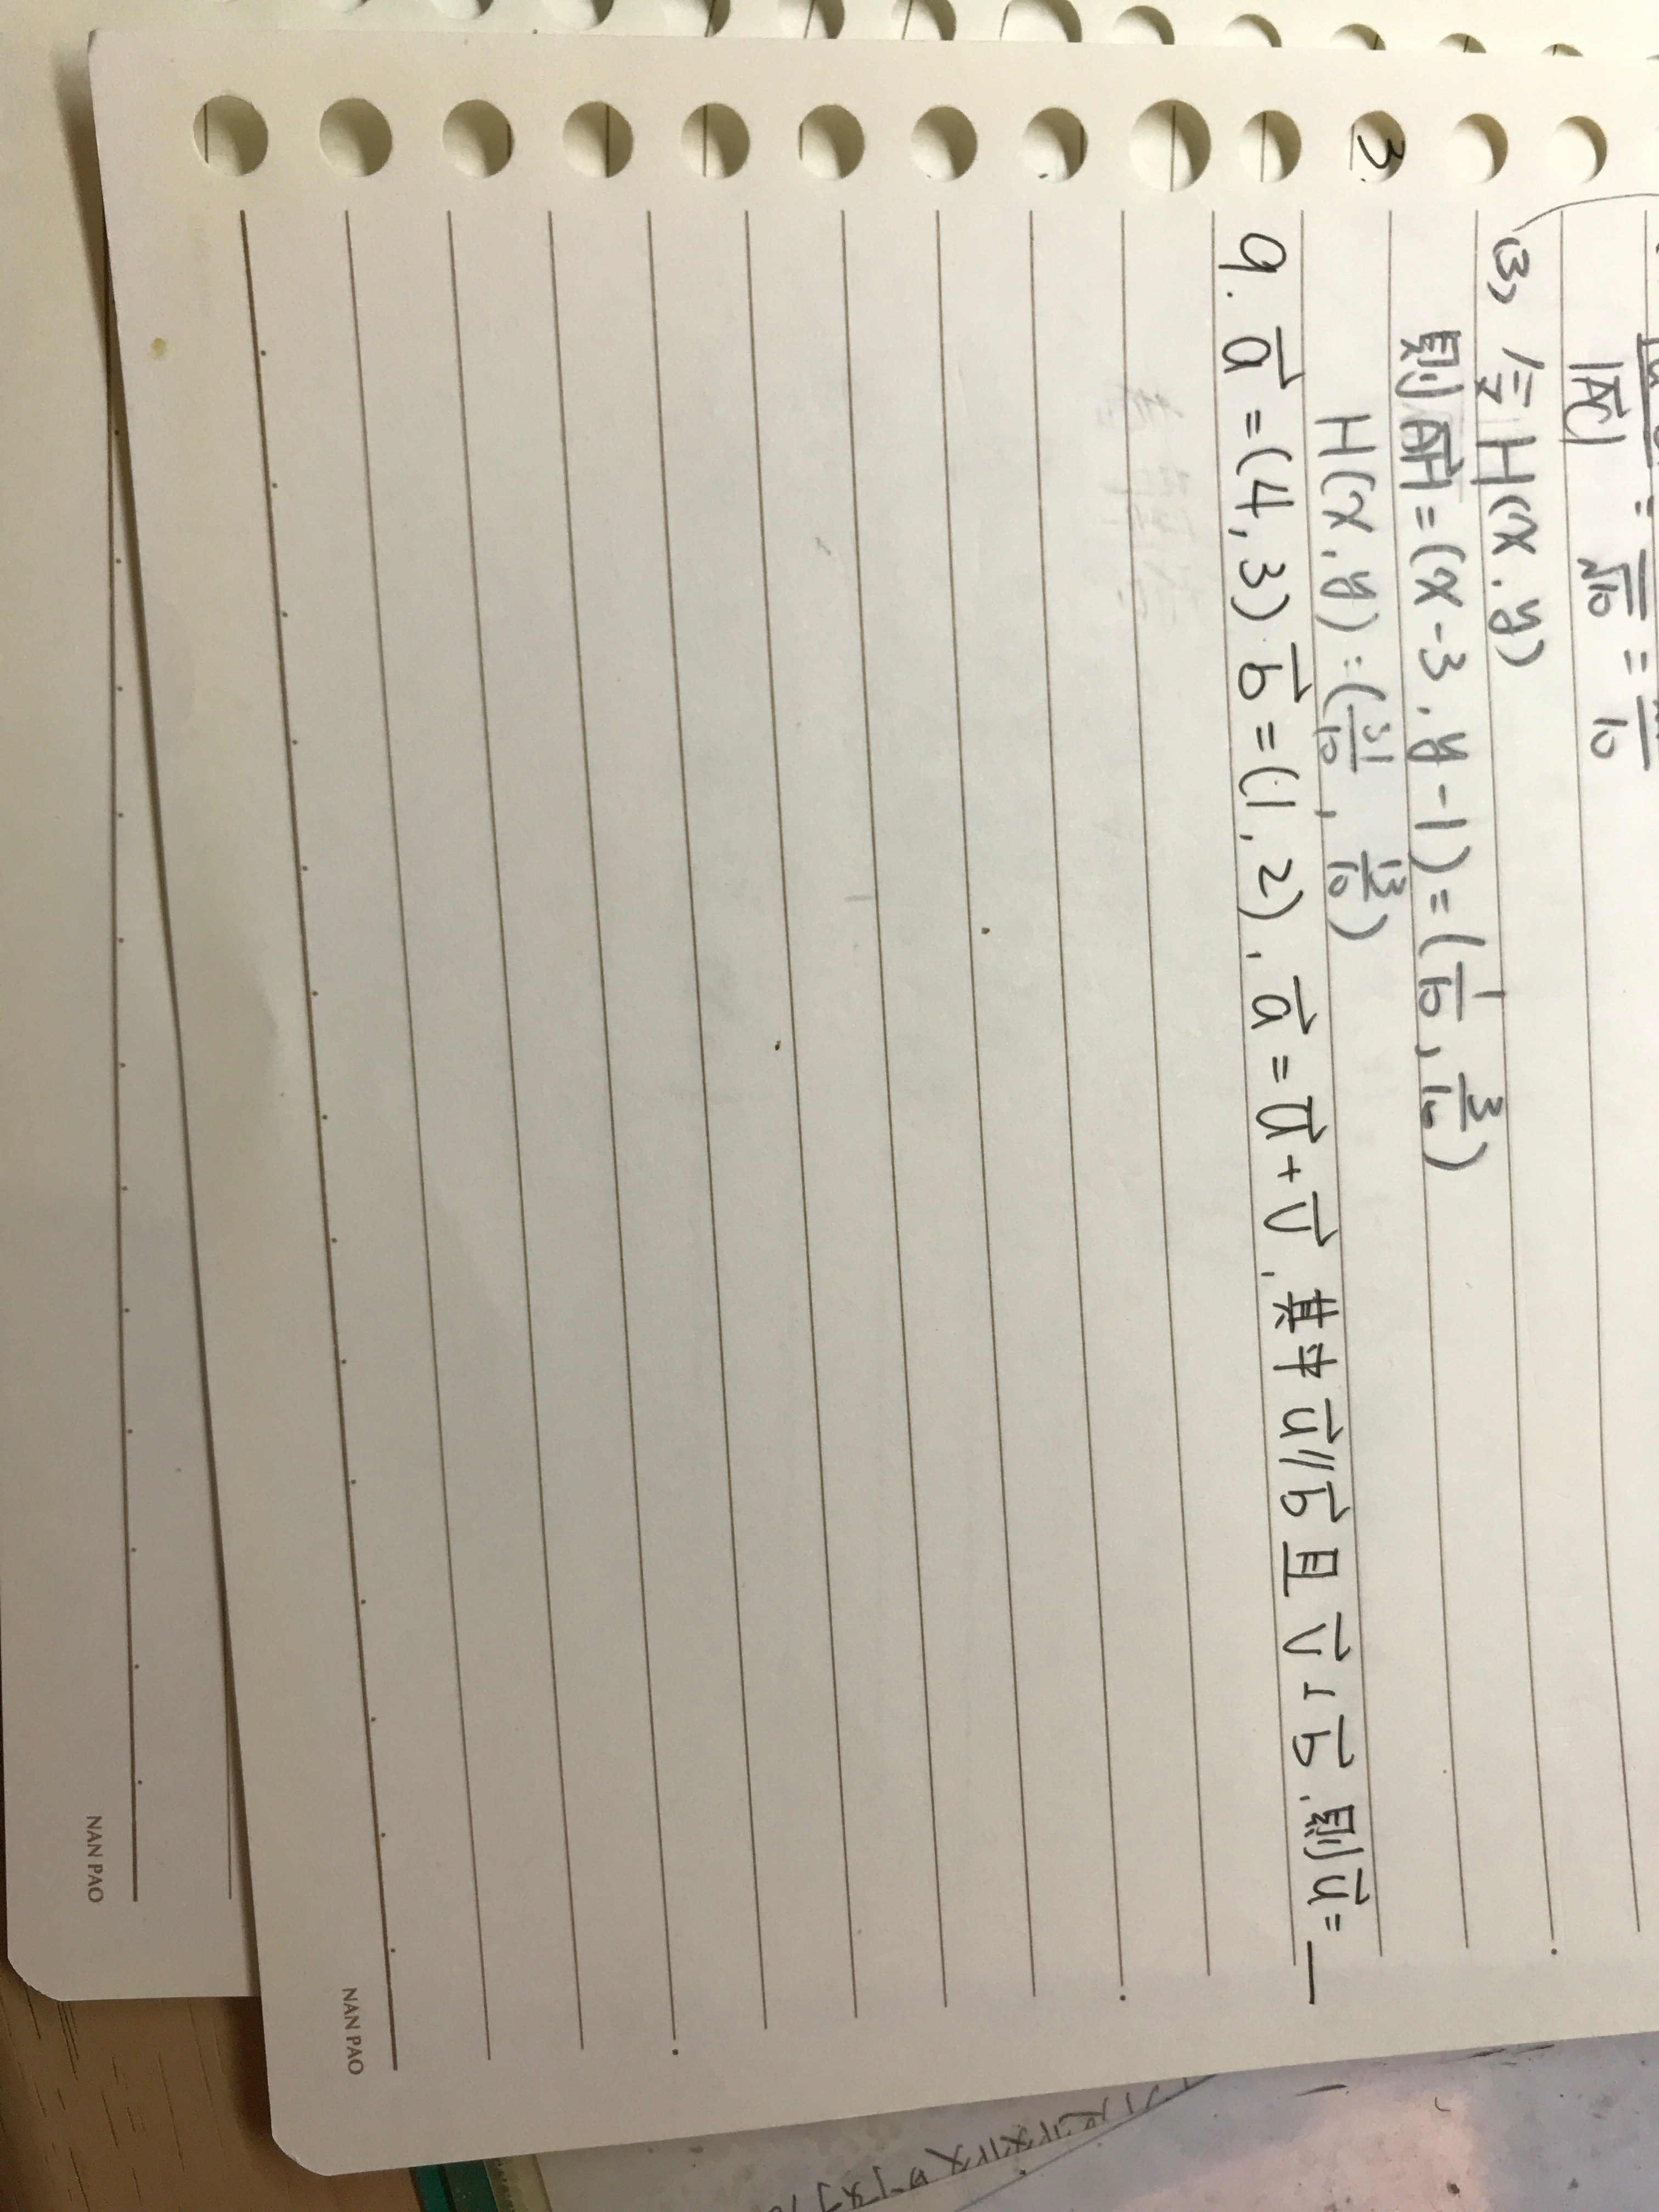 |AC| √10 = 10
(3) 令 H(x, y)
則 AH = (x-3, y-1) = (1/10, 3/10)
H(x, y) : (31/10, 13/10)
9. a = (4, 3) b = (1, 2), a = u + v, 其中 u // b 且 v ⊥ b, 則 u = __
3.
NAN PAO
NAN PAO